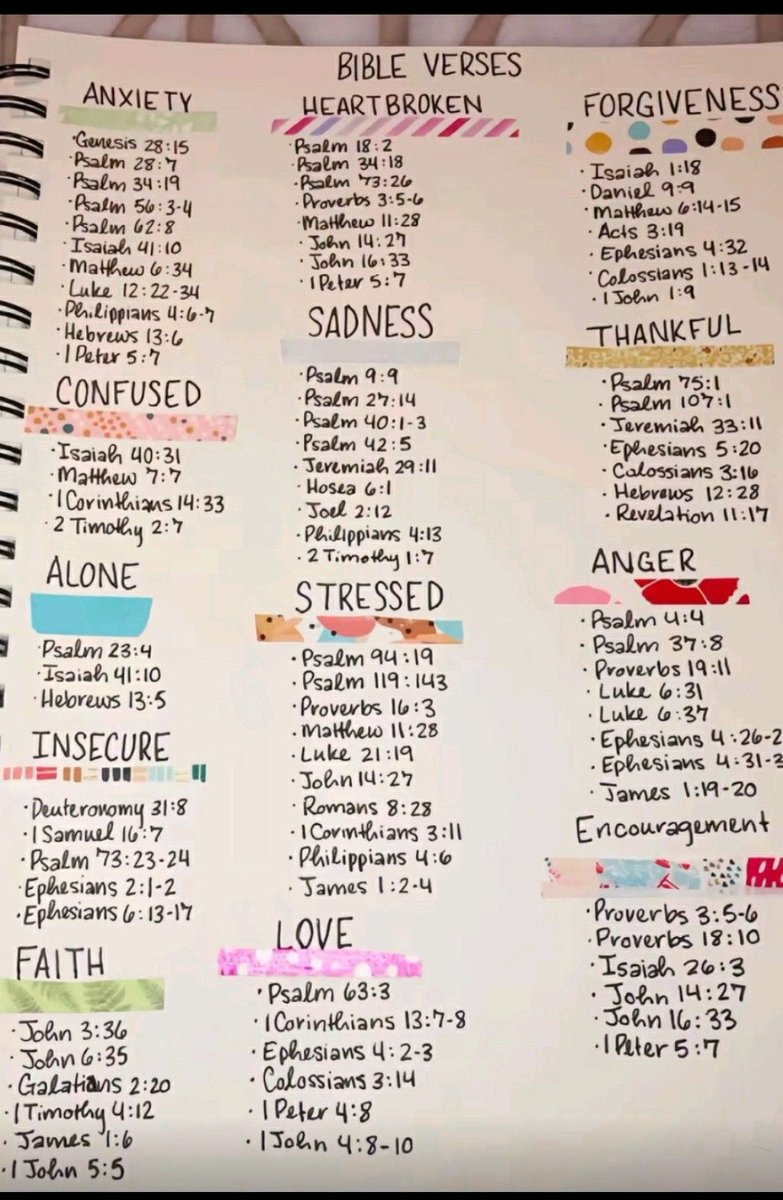 BIBLE VERSES
ANXIETY
·Genesis 28:15
·Psalm 28:7
·Psalm 34:19
·Psalm 56:3-4
·Psalm 62:8
·Isaiah 41:10
·Matthew 6:34
·Luke 12:22-34
·Philippians 4:6-7
·Hebrews 13:6
·1 Peter 5:7
CONFUSED
·Isaiah 40:31
·Matthew 7:7
·1 Corinthians 14:33
·2 Timothy 2:7
ALONE
·Psalm 23:4
·Isaiah 41:10
·Hebrews 13:5
INSECURE
·Deuteronomy 31:8
·1 Samuel 16:7
·Psalm 73:23-24
·Ephesians 2:1-2
·Ephesians 6:13-17
FAITH
·John 3:36
·John 6:35
·Galatians 2:20
·1 Timothy 4:12
·James 1:6
·1 John 5:5
HEARTBROKEN
·Psalm 18:2
·Psalm 34:18
·Psalm 73:26
·Proverbs 3:5-6
·Matthew 11:28
·John 14:27
·John 16:33
·1 Peter 5:7
SADNESS
·Psalm 9:9
·Psalm 27:14
·Psalm 40:1-3
·Psalm 42:5
·Jeremiah 29:11
·Hosea 6:1
·Joel 2:12
·Philippians 4:13
·2 Timothy 1:7
STRESSED
·Psalm 94:19
·Psalm 119:143
·Proverbs 16:3
·Matthew 11:28
·Luke 21:19
·John 14:27
·Romans 8:28
·1 Corinthians 3:11
·Philippians 4:6
·James 1:2-4
LOVE
·Psalm 63:3
·1 Corinthians 13:7-8
·Ephesians 4:2-3
·Colossians 3:14
·1 Peter 4:8
·1 John 4:8-10
FORGIVENESS
·Isaiah 1:18
·Daniel 9:9
·Matthew 6:14-15
·Acts 3:19
·Ephesians 4:32
·Colossians 1:13-14
·1 John 1:9
THANKFUL
·Psalm 75:1
·Psalm 107:1
·Jeremiah 33:11
·Ephesians 5:20
·Colossians 3:16
·Hebrews 12:28
·Revelation 11:17
ANGER
·Psalm 4:4
·Psalm 37:8
·Proverbs 19:11
·Luke 6:31
·Luke 6:37
·Ephesians 4:26-2
·Ephesians 4:31-3
·James 1:19-20
Encouragement
·Proverbs 3:5-6
·Proverbs 18:10
·Isaiah 26:3
·John 14:27
·John 16:33
·1 Peter 5:7